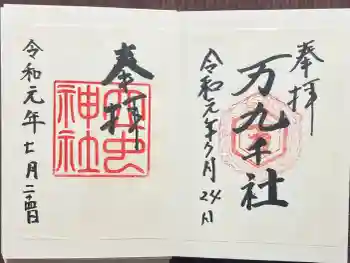 奉拝
万九千社
令和元年7月24日
奉拝
神社
令和元年七月二四日